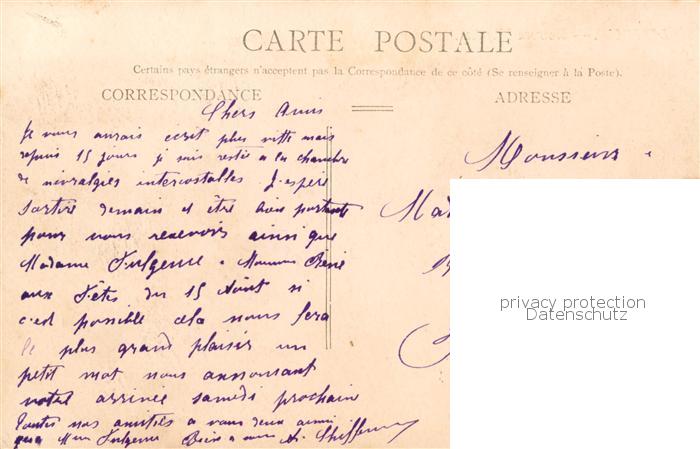 CARTE POSTALE
Certains pays étrangers n'acceptent pas la Correspondance de ce côté (Se renseigner à la Poste).
CORRESPONDANCE
ADRESSE
Chers Amis
Je vous aurais ecrit plus vitte mais
depuis 15 jours je suis resté a la chambre
de nevralgies intercostalles J'espère
sortir demain et être bien portante
pour vous recevoir ainsi que
Madame Fulgence & Monsieur Béné
aux Fêtes du 15 Août si
c'est possible cela nous fera
le plus grand plaisir un
petit mot nous annonsant
votre arrivée samedi prochain
Toutes nos amitiés a vous deux ainsi
que Mme Fulgence Béné
Monsieur
Mad
privacy protection
Datenschutz